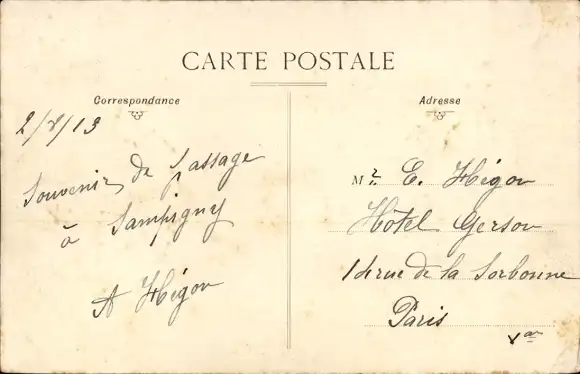 CARTE POSTALE
Correspondance
2/8/13
Souvenir de passage
à Sampigny
A Hégon
Adresse
Mr. E. Hégon
Hôtel Gerson
rue de la Sorbonne
Paris